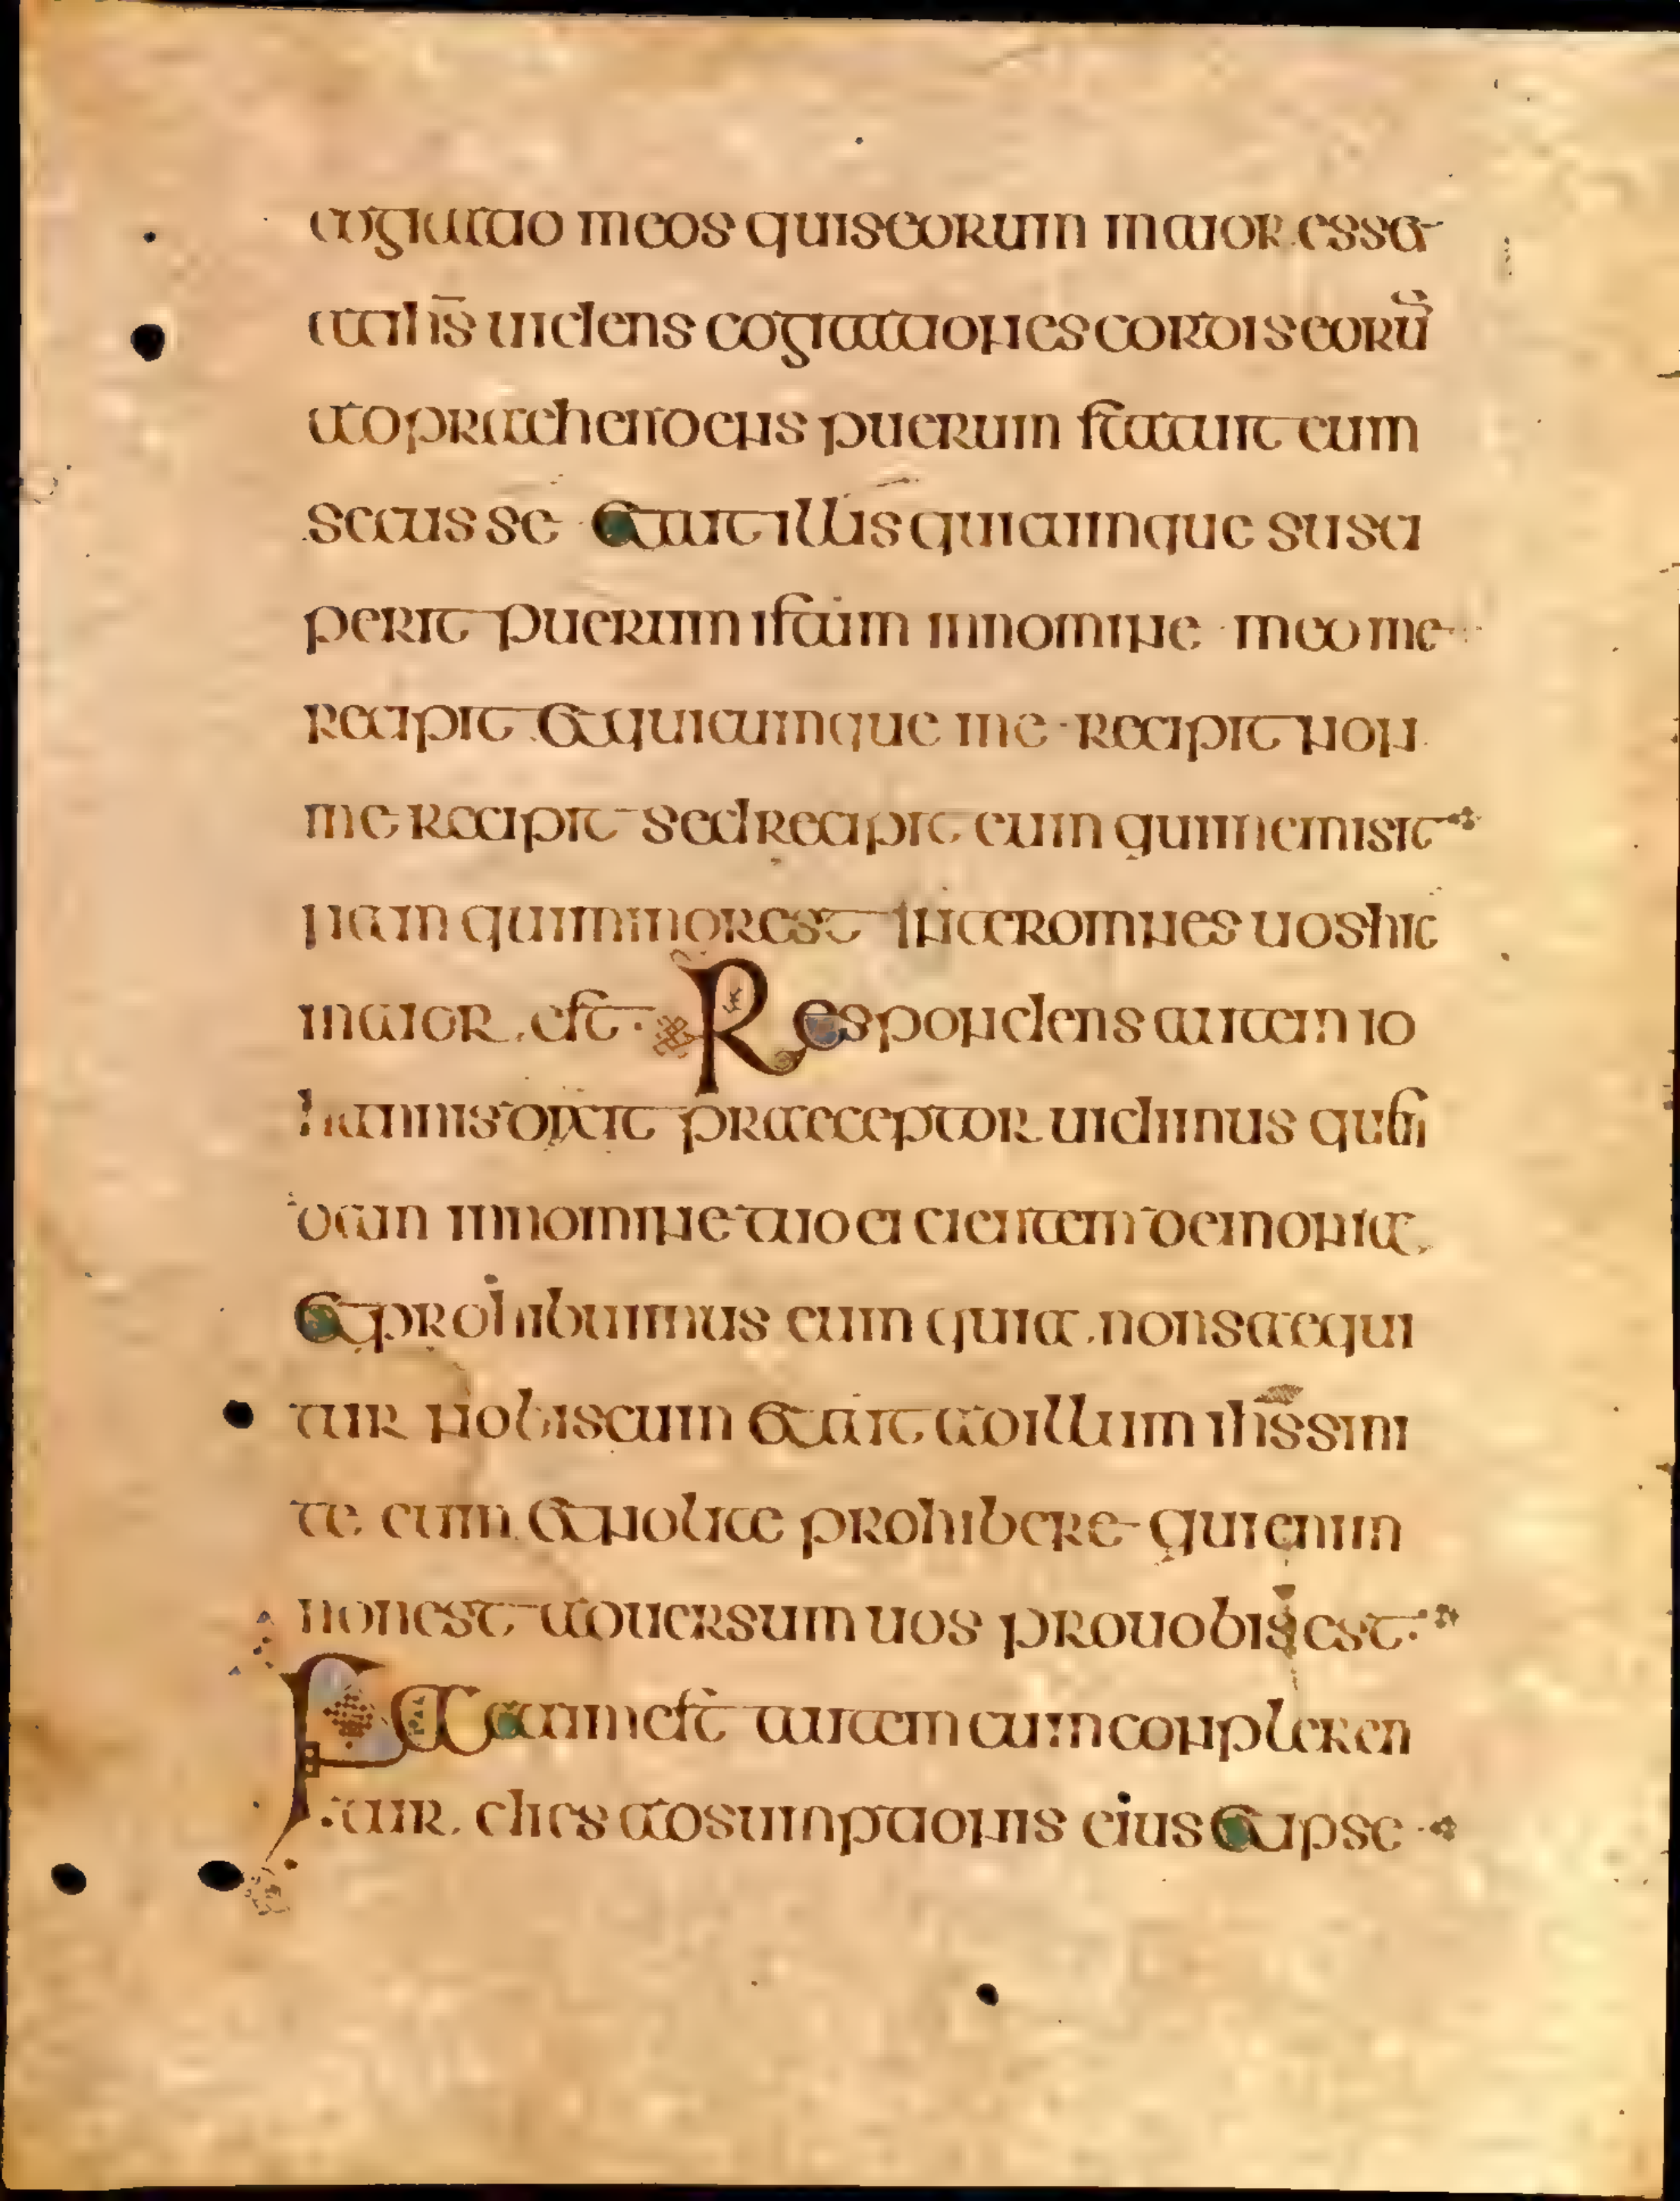 cogitatio in eos quis eorum maior esset
at ihs uidens cogitationes cordis eorū
adpraehendens puerum statuit eum
secus se et ait illis quicumque susci
perit puerum istum in nomine meo me
recipit et quicumque me recipit non
me recipit sed recipit eum qui me misit
nam qui minor est inter omnes uos hic
maior est Respondens autem io
hannis dixit praeceptor uidimus quen
dam in nomine tuo eiecientem demonia
et prohibuimus eum quia non saequi
tur nobiscum et ait ad illum ihs sini
te eum et nolite prohibere qui enim
non est aduersum uos pro uobis est
Factum est autem cum conpleren
tur dies adsumptionis eius et ipse